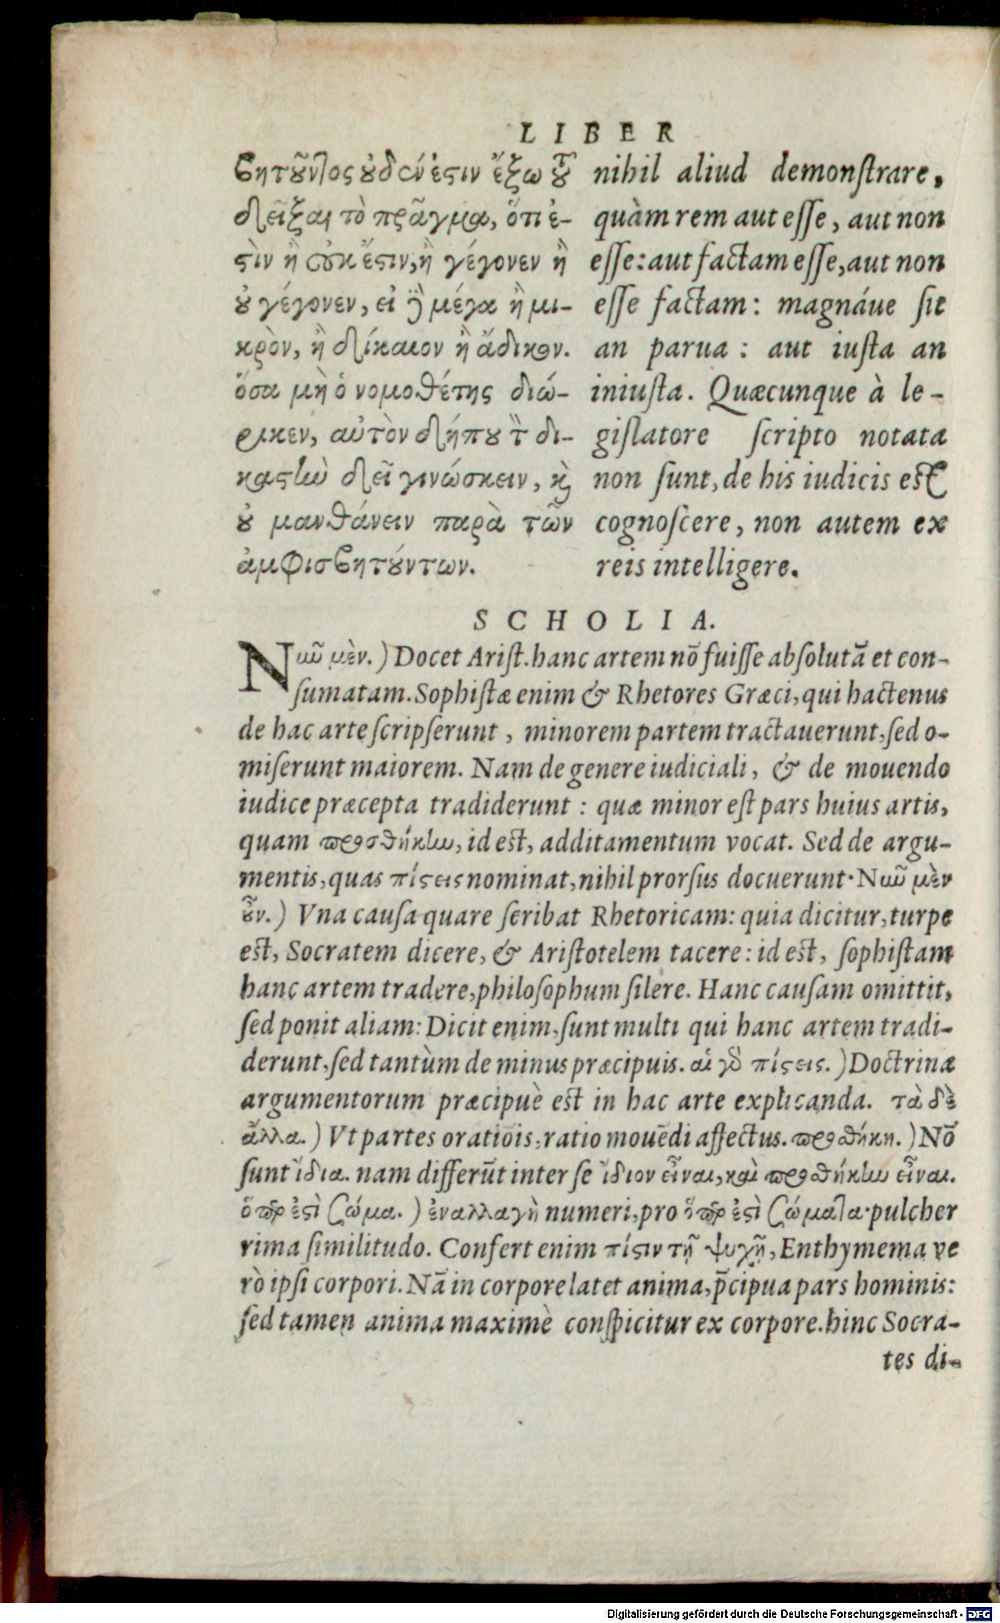 LIBER
βητοῦντος οὐδέν ἐστιν ἔξω τοῦ
δεῖξαι τὸ πρᾶγμα, ὅτι ἐ-
στὶν ἢ οὐκ ἔστιν, ἢ γέγονεν ἢ
οὐ γέγονεν, εἰ δὲ μέγα ἢ μι-
κρὸν, ἢ δίκαιον ἢ ἄδικον.
ὅσα μὴ ὁ νομοθέτης διώ-
ρικεν, αὐτὸν δήπου τὸν δι-
καστὴν δεῖ γινώσκειν, καὶ
οὐ μανθάνειν παρὰ τῶν
ἀμφισβητούντων.
nihil aliud demonſtrare,
quàm rem aut eſſe, aut non
eſſe: aut factam eſſe, aut non
eſſe factam: magnáue ſit
an parua: aut iuſta an
iniuſta. Quæcunque à le-
giſlatore ſcripto notata
non ſunt, de his iudicis eſt
cognoſcere, non autem ex
reis intelligere.
SCHOLIA.
Νῦν μὲν.) Docet Ariſt. hanc artem nō fuiſſe abſolutā et con-
ſumatam. Sophiſtæ enim & Rhetores Græci, qui hactenus
de hac arte ſcripſerunt, minorem partem tractauerunt, ſed o-
miſerunt maiorem. Nam de genere iudiciali, & de mouendo
iudice præcepta tradiderunt: quæ minor eſt pars huius artis,
quam προσθήκην, id eſt, additamentum vocat. Sed de argu-
mentis, quas πίστεις nominat, nihil prorſus docuerunt. Νῦν μὲν
οὖν.) Vna cauſa quare ſcribat Rhetoricam: quia dicitur, turpe
eſt, Socratem dicere, & Ariſtotelem tacere: id eſt, ſophiſtam
hanc artem tradere, philoſophum ſilere. Hanc cauſam omittit,
ſed ponit aliam: Dicit enim, ſunt multi qui hanc artem tradi-
derunt, ſed tantùm de minus præcipuis. αἱ γὰρ πίστεις.) Doctrina
argumentorum præcipuè eſt in hac arte explicanda. τὰ δὲ
ἄλλα.) Vt partes orationis, ratio mouēdi affectus. προσθήκη.) Nō
ſunt ἴδια. nam differūt inter ſe ἴδιον εἶναι, καὶ προσθήκην εἶναι.
ὅπερ ἐστὶ σώμα.) ἐναλλαγὴ numeri, pro ὅπερ ἐστὶ σώματα. pulcher
rima ſimilitudo. Confert enim πίστιν τῇ ψυχῇ, Enthymema ve
rò ipſi corpori. Nā in corpore latet anima, p̄cipua pars hominis:
ſed tamen anima maximè conſpicitur ex corpore. hinc Socra-
tes di-
Digitalisierung gefördert durch die Deutsche Forschungsgemeinschaft - DFG